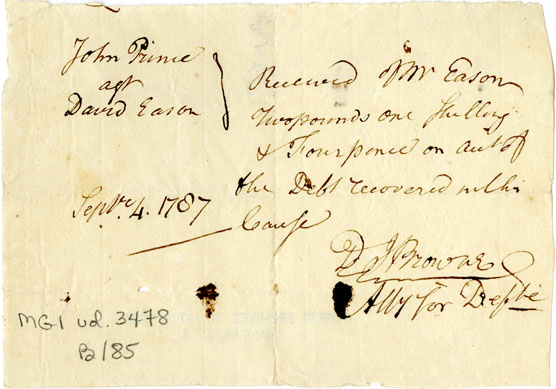 John Prince
agt
David Eason
Septr. 4. 1787
Received of Mr Eason
Two pounds one Shilling
& Four pence on acct of
the Debt recovered in this
Cause
D J Browne
Atty for
MG1 vol. 3478
B/85